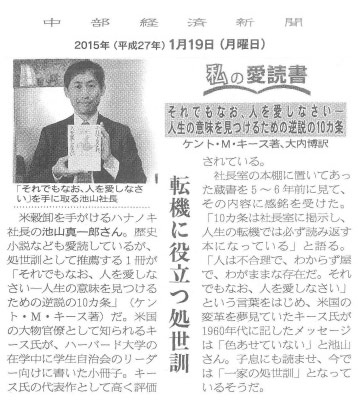 中部経済新聞
2015年(平成27年)1月19日(月曜日)
私の愛読書
それでもなお、人を愛しなさい―
人生の意味を見つけるための逆説の10カ条
ケント・M・キース著、大内博訳
「それでもなお、人を愛しなさ
い」を手に取る池山社長
転機に役立つ処世訓
米穀卸を手がけるハナノキ
社長の池山真一郎さん。歴史
小説なども愛読しているが、
処世訓として推薦する1冊が
「それでもなお、人を愛しな
さい―人生の意味を見つける
ための逆説の10カ条」(ケン
ト・M・キース著)だ。米国
の大物官僚として知られるキ
ース氏が、ハーバード大学の
在学中に学生自治会のリーダ
ー向けに書いた小冊子。キー
ス氏の代表作として高く評価
されている。
社長室の本棚に置いてあっ
た蔵書を5~6年前に見て、
その内容に感銘を受けた。
「10カ条は社長室に掲示し、
人生の転機では必ず読み返す
本になっている」と語る。
「人は不合理で、わからず屋
で、わがままな存在だ。それ
でもなお、人を愛しなさい」
という言葉をはじめ、米国の
変革を夢見ていたキース氏が
1960年代に記したメッセージ
は「色あせていない」と池山
さん。子息にも読ませ、今で
は「一家の処世訓」となって
いるそうだ。